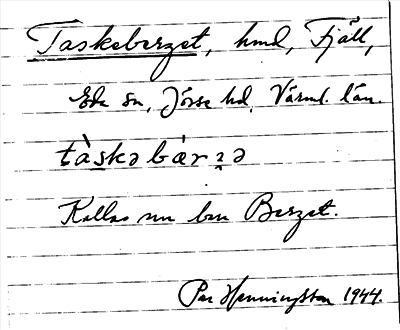 Taskeberget, hmd, Fjäll,
Eda sn, Jösse hd, Värml. län.
tàskəbár̀ʒə
Kallas nu bm Berget.
Per Henningsson 1944.